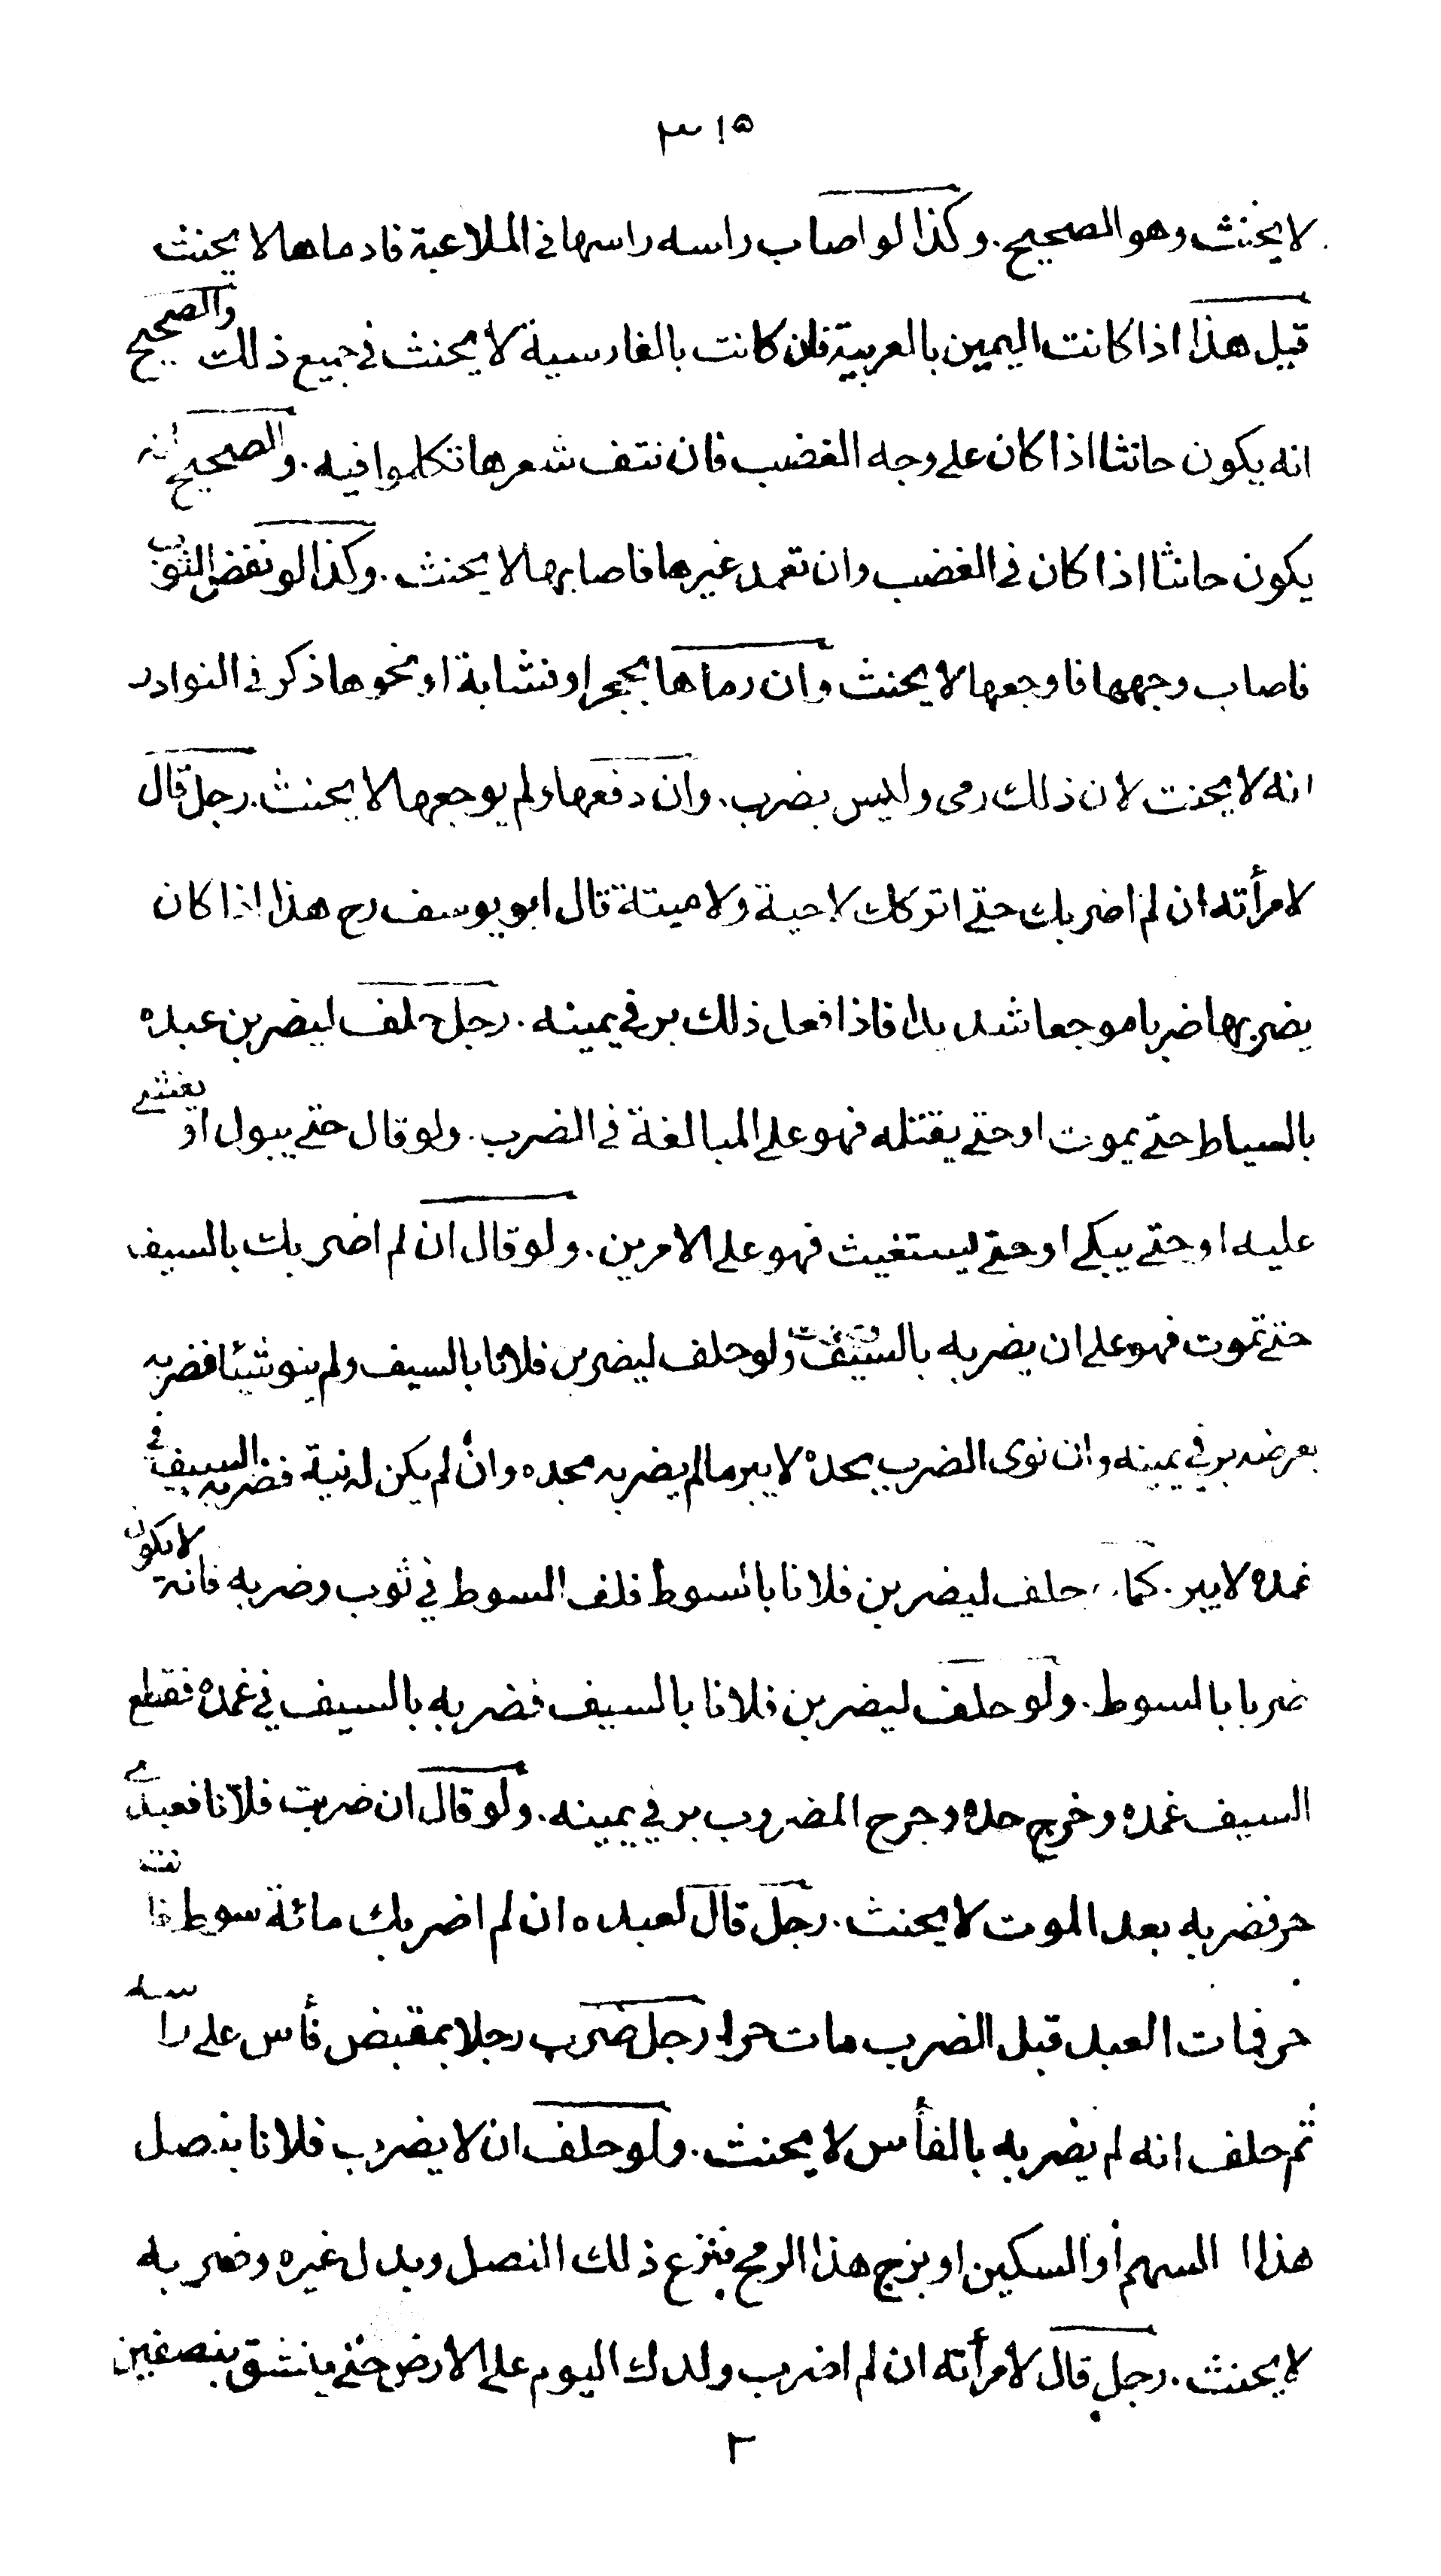 ٣١٥
لا يحنث وهو الصحيح. وكذا لو اصاب راسه راسها في الملاعبة فادماها لا يحنث
قيل هذا اذا كانت اليمين بالعربية فان كانت بالفارسية لا يحنث في جميع ذلك والصحيح
انه يكون حانثا اذا كان على وجه الغضب فان نتف شعرها تكلموا فيه. والصحيح انه
يكون حانثا اذا كان في الغضب وان تعمد غيرها فاصابها لا يحنث. وكذا لو نفض الثوب
فاصاب وجهها فاوجعها لا يحنث وان رماها بحجر او نشابة او نحوها ذكر في النوادر
انه لا يحنث لان ذلك رمى وليس بضرب. وان دفعها ولم يوجعها لا يحنث. رجل قال
لامرأته ان لم اضربك حتى اتركك لا حية ولا ميتة قال ابو يوسف رح هذا اذا كان
يضربها ضربا موجعا شديدا فاذا فعل ذلك بر في يمينه. رجل حلف ليضربن عبده
بالسياط حتى يموت او حتى يقتله فهو على المبالغة في الضرب. ولو قال حتى يبول او يغشى
عليه او حتى يبكى او حتى يستغيث فهو على الامرين. ولو قال ان لم اضربك بالسيف
حتى تموت فهو على ان يضربه بالسيف ولو حلف ليضربن فلانا بالسيف ولم ينو شيئا فضربه
بعرضه بر في يمينه وان نوى الضرب بحده لا يبر ما لم يضربه بحده وان لم يكن له نية فضربه بالسيف في
غمده لا يبر. كما حلف ليضربن فلانا بالسوط فلف السوط في ثوب وضربه فانه لا يكون
ضربا بالسوط. ولو حلف ليضربن فلانا بالسيف فضربه بالسيف في غمده فقطع
السيف غمده وخرج حده وجرح المضروب بر في يمينه. ولو قال ان ضربت فلانا فعبدى
حر فضربه بعد الموت لا يحنث. رجل قال لعبده ان لم اضربك مائة سوط فانت
حر فمات العبد قبل الضرب مات حرا. رجل ضرب رجلا بمقبض فأس على راسه
ثم حلف انه لم يضربه بالفأس لا يحنث. ولو حلف ان لا يضرب فلانا بنصل
هذا السهم أو السكين او بزج هذا الرمح فنزع ذلك النصل وبدل غيره وضربه
لا يحنث. رجل قال لامرأته ان لم اضرب ولدك اليوم على الارض حتى ينشق بنصفين
٢